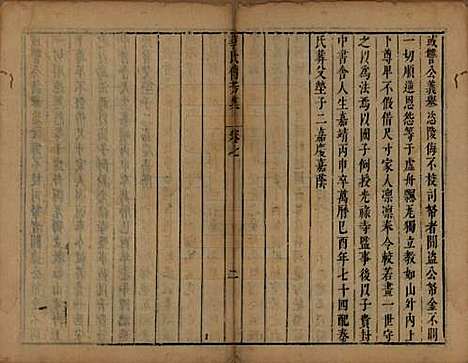 或讐公義舉恣陵侮不校司幣者關盜公帑金不問
一切順逆恩怨等于虛舟飄瓦獨立教如山外內上
卜尊卑不假借尺寸家人凛凛来今較若畫一世守
之以為法焉以國子例授光禄寺監事後以子貴封
中書舍人生嘉靖丙申卒萬曆己酉年七十四配秦
氏葬父塋子二嘉慶嘉蔭
氏傳芳集
卷七
二